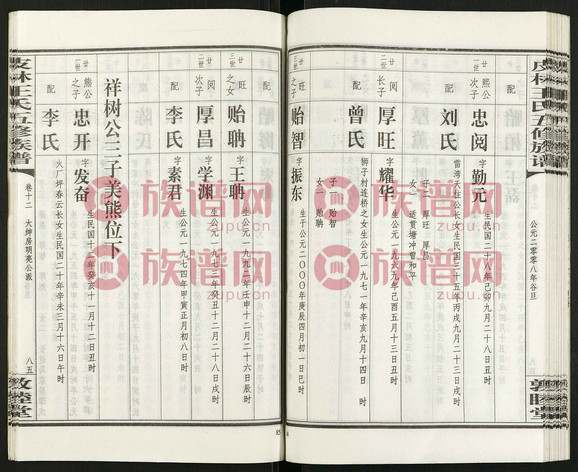 皮林王氏五修族谱
公元二零零八年谷旦
敦睦堂
廿一世
熙公次子
忠阅
字勤元
生民国二十八年己卯九月二十八日丑时
配
刘氏
雷湾天柱公长女生民国三十五年丙戌九月二十三日戌时
子二
厚旺
厚昌
女一
适贯塘冲曾和平
廿二世
长子
厚旺
字耀华
生公元一九六九年己酉五月十三日辰时
配
曾氏
狮子村连桥之女生公元一九七一年辛亥九月十四日时
子一
贻智
女一
贻聘
廿三世
旺之子
贻智
字振东
生于公元二〇〇〇年庚辰四月初一日巳时
廿三世
旺之女
贻聘
字王聘
生公元一九九二年壬申十二月二十六日辰时
廿二世
次子
厚昌
字学渊
生公元一九七三年癸丑十二月二十八日戌时
配
李氏
字素君
生公元一九七四年甲寅正月初八日时
祥树公三子美熊位下
廿一世
熊公之子
忠开
字发奋
生民国十二年癸亥十一月十二日丑时
配
李氏
火厂坪春云长女生民国二十年辛未三月十六日午时
皮林王氏五修族谱
卷十二
大绅房明亮公派
八五
敦睦堂
族谱网
zupu.cn